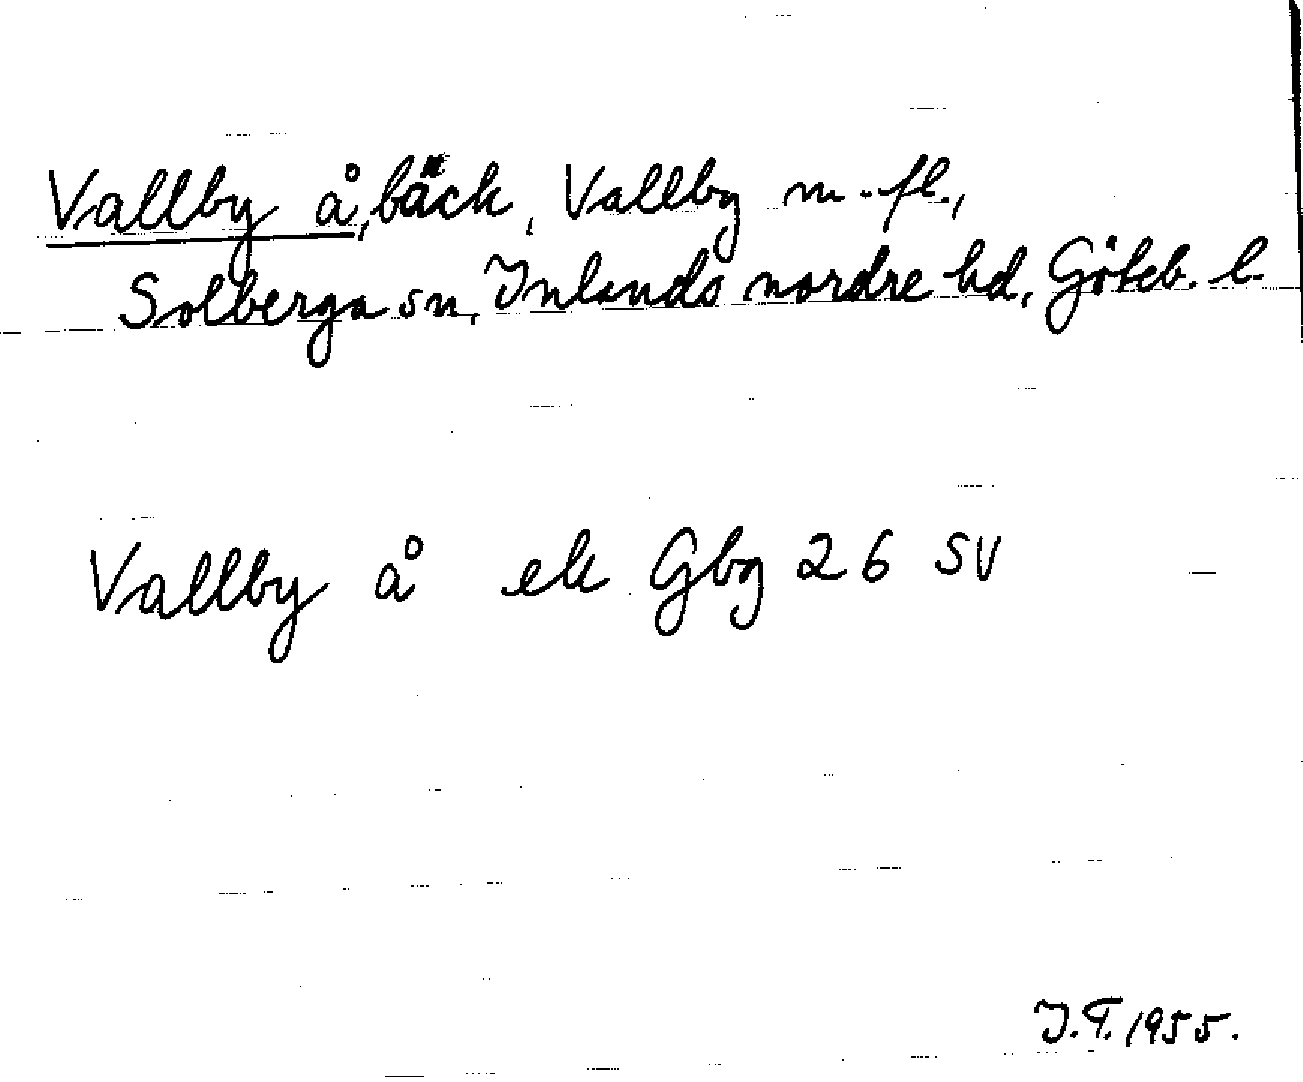 Vallby å, bäck, Vallby m. fl.,
Solberga sn, Inlands nordre hd, Göteb. l.
Vallby å ek Gbg 26 SV
J.T. 1955.